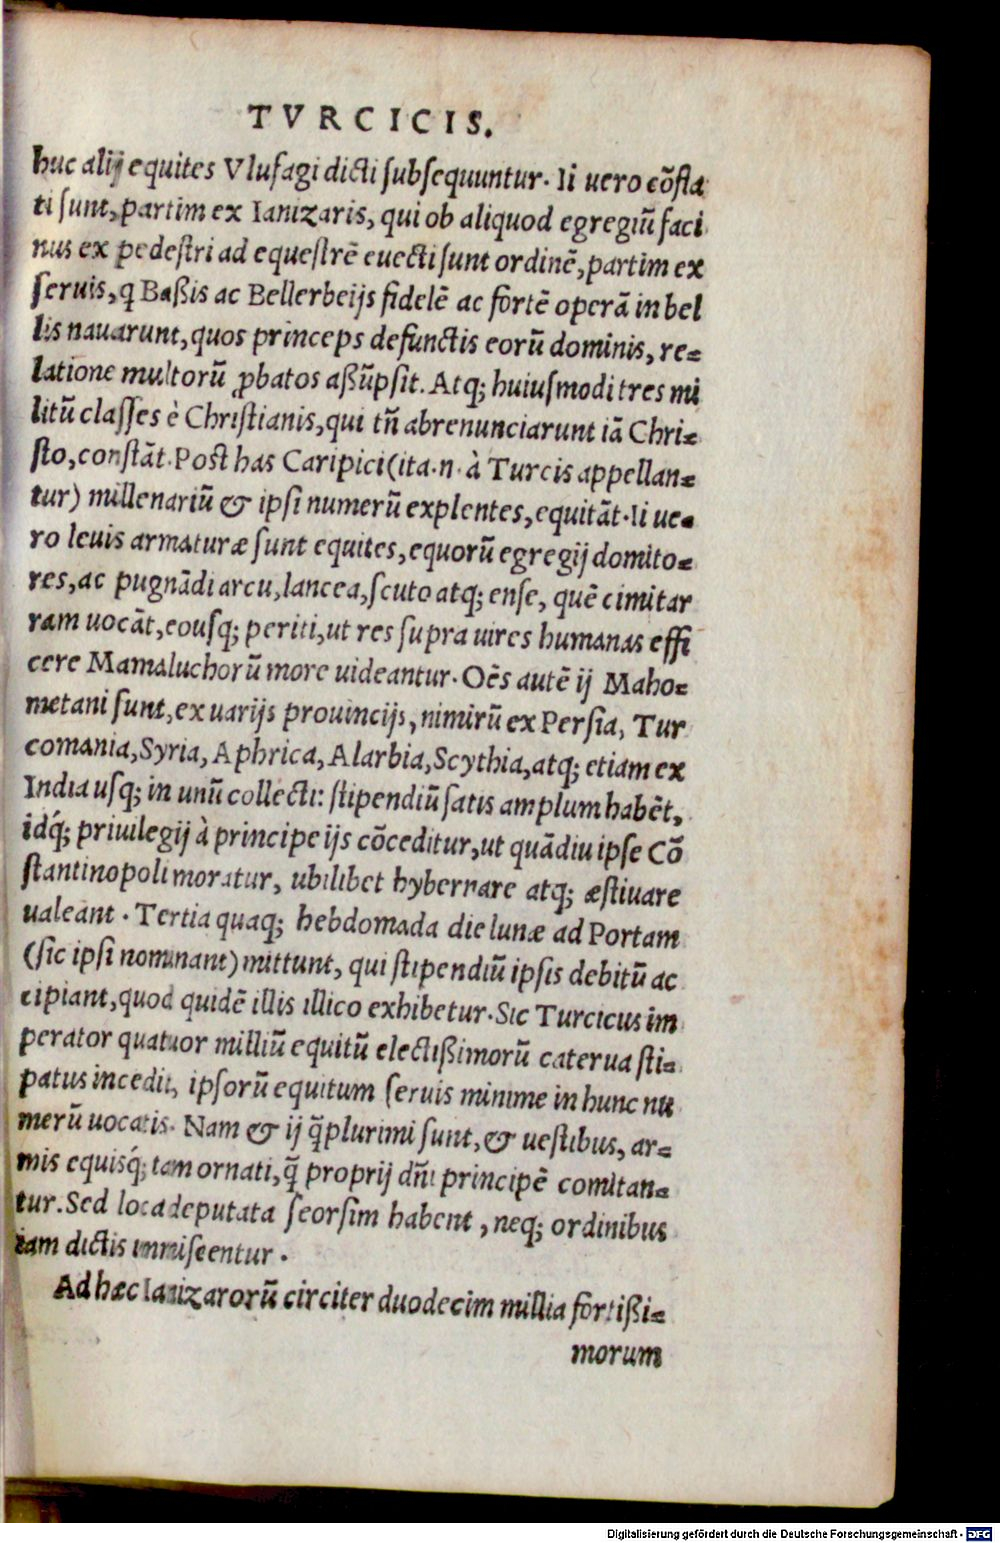 TVRCICIS.
huc alij equites Vlufagi dicti ſubſequuntur. Ii uero cõfla
ti ſunt, partim ex Ianizaris, qui ob aliquod egregiũ faci
nus ex pedeſtri ad equeſtrẽ euecti ſunt ordinẽ, partim ex
ſeruis, q Baßis ac Bellerbeijs fidelẽ ac fortẽ operã in bel
lis nauarunt, quos princeps defunctis eorũ dominis, re=
latione multorũ ꝓbatos aßũpſit. Atq; huiuſmodi tres mi
litũ claſſes è Chriſtianis, qui tñ abrenunciarunt iã Chri=
ſto, conſtãt. Poſt has Caripici (ita .n. à Turcis appellan=
tur) millenariũ & ipſi numerũ explentes, equitãt. Ii ue=
ro leuis armaturæ ſunt equites, equorũ egregij domito=
res, ac pugnãdi arcu, lancea, ſcuto atq; enſe, quẽ cimitar
ram uocãt, eouſq; periti, ut res ſupra uires humanas effi
cere Mamaluchorũ more uideantur. Oẽs autẽ ij Maho=
metani ſunt, ex uarijs prouincijs, nimirũ ex Perſia, Tur
comania, Syria, Aphrica, Alarbia, Scythia, atq; etiam ex
India uſq; in unũ collecti: ſtipendiũ ſatis amplum habẽt,
idq́; priuilegij à principe ijs cõceditur, ut quãdiu ipſe Cõ
ſtantinopoli moratur, ubilibet hybernare atq; æſtiuare
ualeant. Tertia quaq; hebdomada die lunæ ad Portam
(ſic ipſi nominant) mittunt, qui ſtipendiũ ipſis debitũ ac
cipiant, quod quidẽ illis illico exhibetur. Sic Turcicus im
perator quatuor milliũ equitũ electißimorũ caterua ſti=
patus incedit, ipſorũ equitum ſeruis minime in hunc nu
merũ uocatis. Nam & ij q̃plurimi ſunt, & ueſtibus, ar=
mis equisq́; tam ornati, q̃ proprij dñi principẽ comitan=
tur. Sed loca deputata ſeorſim habent, neq; ordinibus
iam dictis immiſcentur.
Ad hæc Ianizarorũ circiter duodecim millia fortißi=
morum
Digitalisierung gefördert durch die Deutsche Forschungsgemeinschaft - DFG